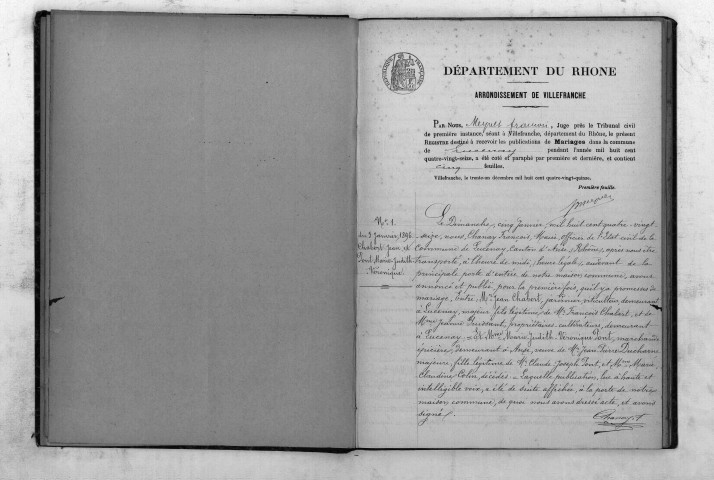 DÉPARTEMENT DU RHONE
ARRONDISSEMENT DE VILLEFRANCHE
PAR NOUS, , Juge près le Tribunal civil
de première instance, séant à Villefranche, département du Rhône, le présent
REGISTRE destiné à recevoir les publications de Mariages dans la commune
de Lucenay pendant l'année mil huit cent
quatre-vingt-seize, a été coté et paraphé par première et dernière, et contient
cinq feuilles.
Villefranche, le trente-un décembre mil huit cent quatre-vingt-quinze.
Première feuille.
N° 1.
du 5 Janvier 1896
Chabert Jean et
Pont Marie Judith
Véronique
Le Dimanche, cinq Janvier, mil huit cent quatre-vingt
seize, nous, Chanay François, Maire, officier de l'Etat civil de la
commune de Lucenay, Canton d'Anse, (Rhône), après nous être
transporté, à l'heure de midi, (heure légale), au devant de la
principale porte d'entrée de notre maison commune, avons
annoncé et publié pour la première fois, qu'il y a promesses de
mariage, Entre: Mr Jean Chabert, jardinier, viticulteur, demeurant
à Lucenay, majeur, fils légitime, de Mr François Chabert, et de
Mme Jeanne Puissant, propriétaires, cultivateurs, demeurant
à Lucenay. - Et Mme Marie Judith Véronique Pont, marchande
épicière, demeurant à Anse, veuve de Mr Jean Pierre Ducharne
majeure, fille légitime de Mr Claude Joseph Pont, et Mme Marie
Claudine Colin, décédés. - Laquelle publication, lue à haute et
intelligible voix, a été de suite affichée, à la porte de notre
maison commune, de quoi nous avons dressé acte, et avons
signé.
Chanay